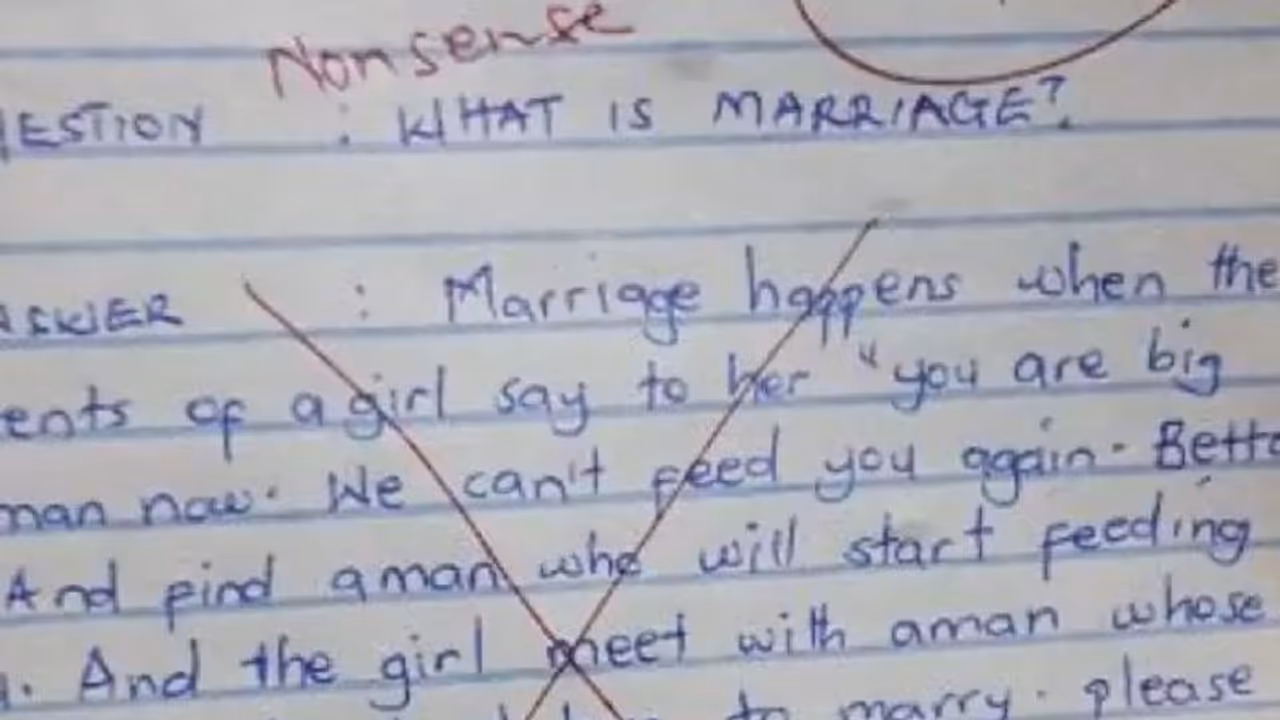 Nonsense
ESTION : WHAT IS MARRIAGE?
ASWER : Marriage happens when the
ents of a girl say to her "you are big
man now. We can't feed you again. Bette
And find a man who will start feeding
. And the girl meet with a man whose
to marry. please